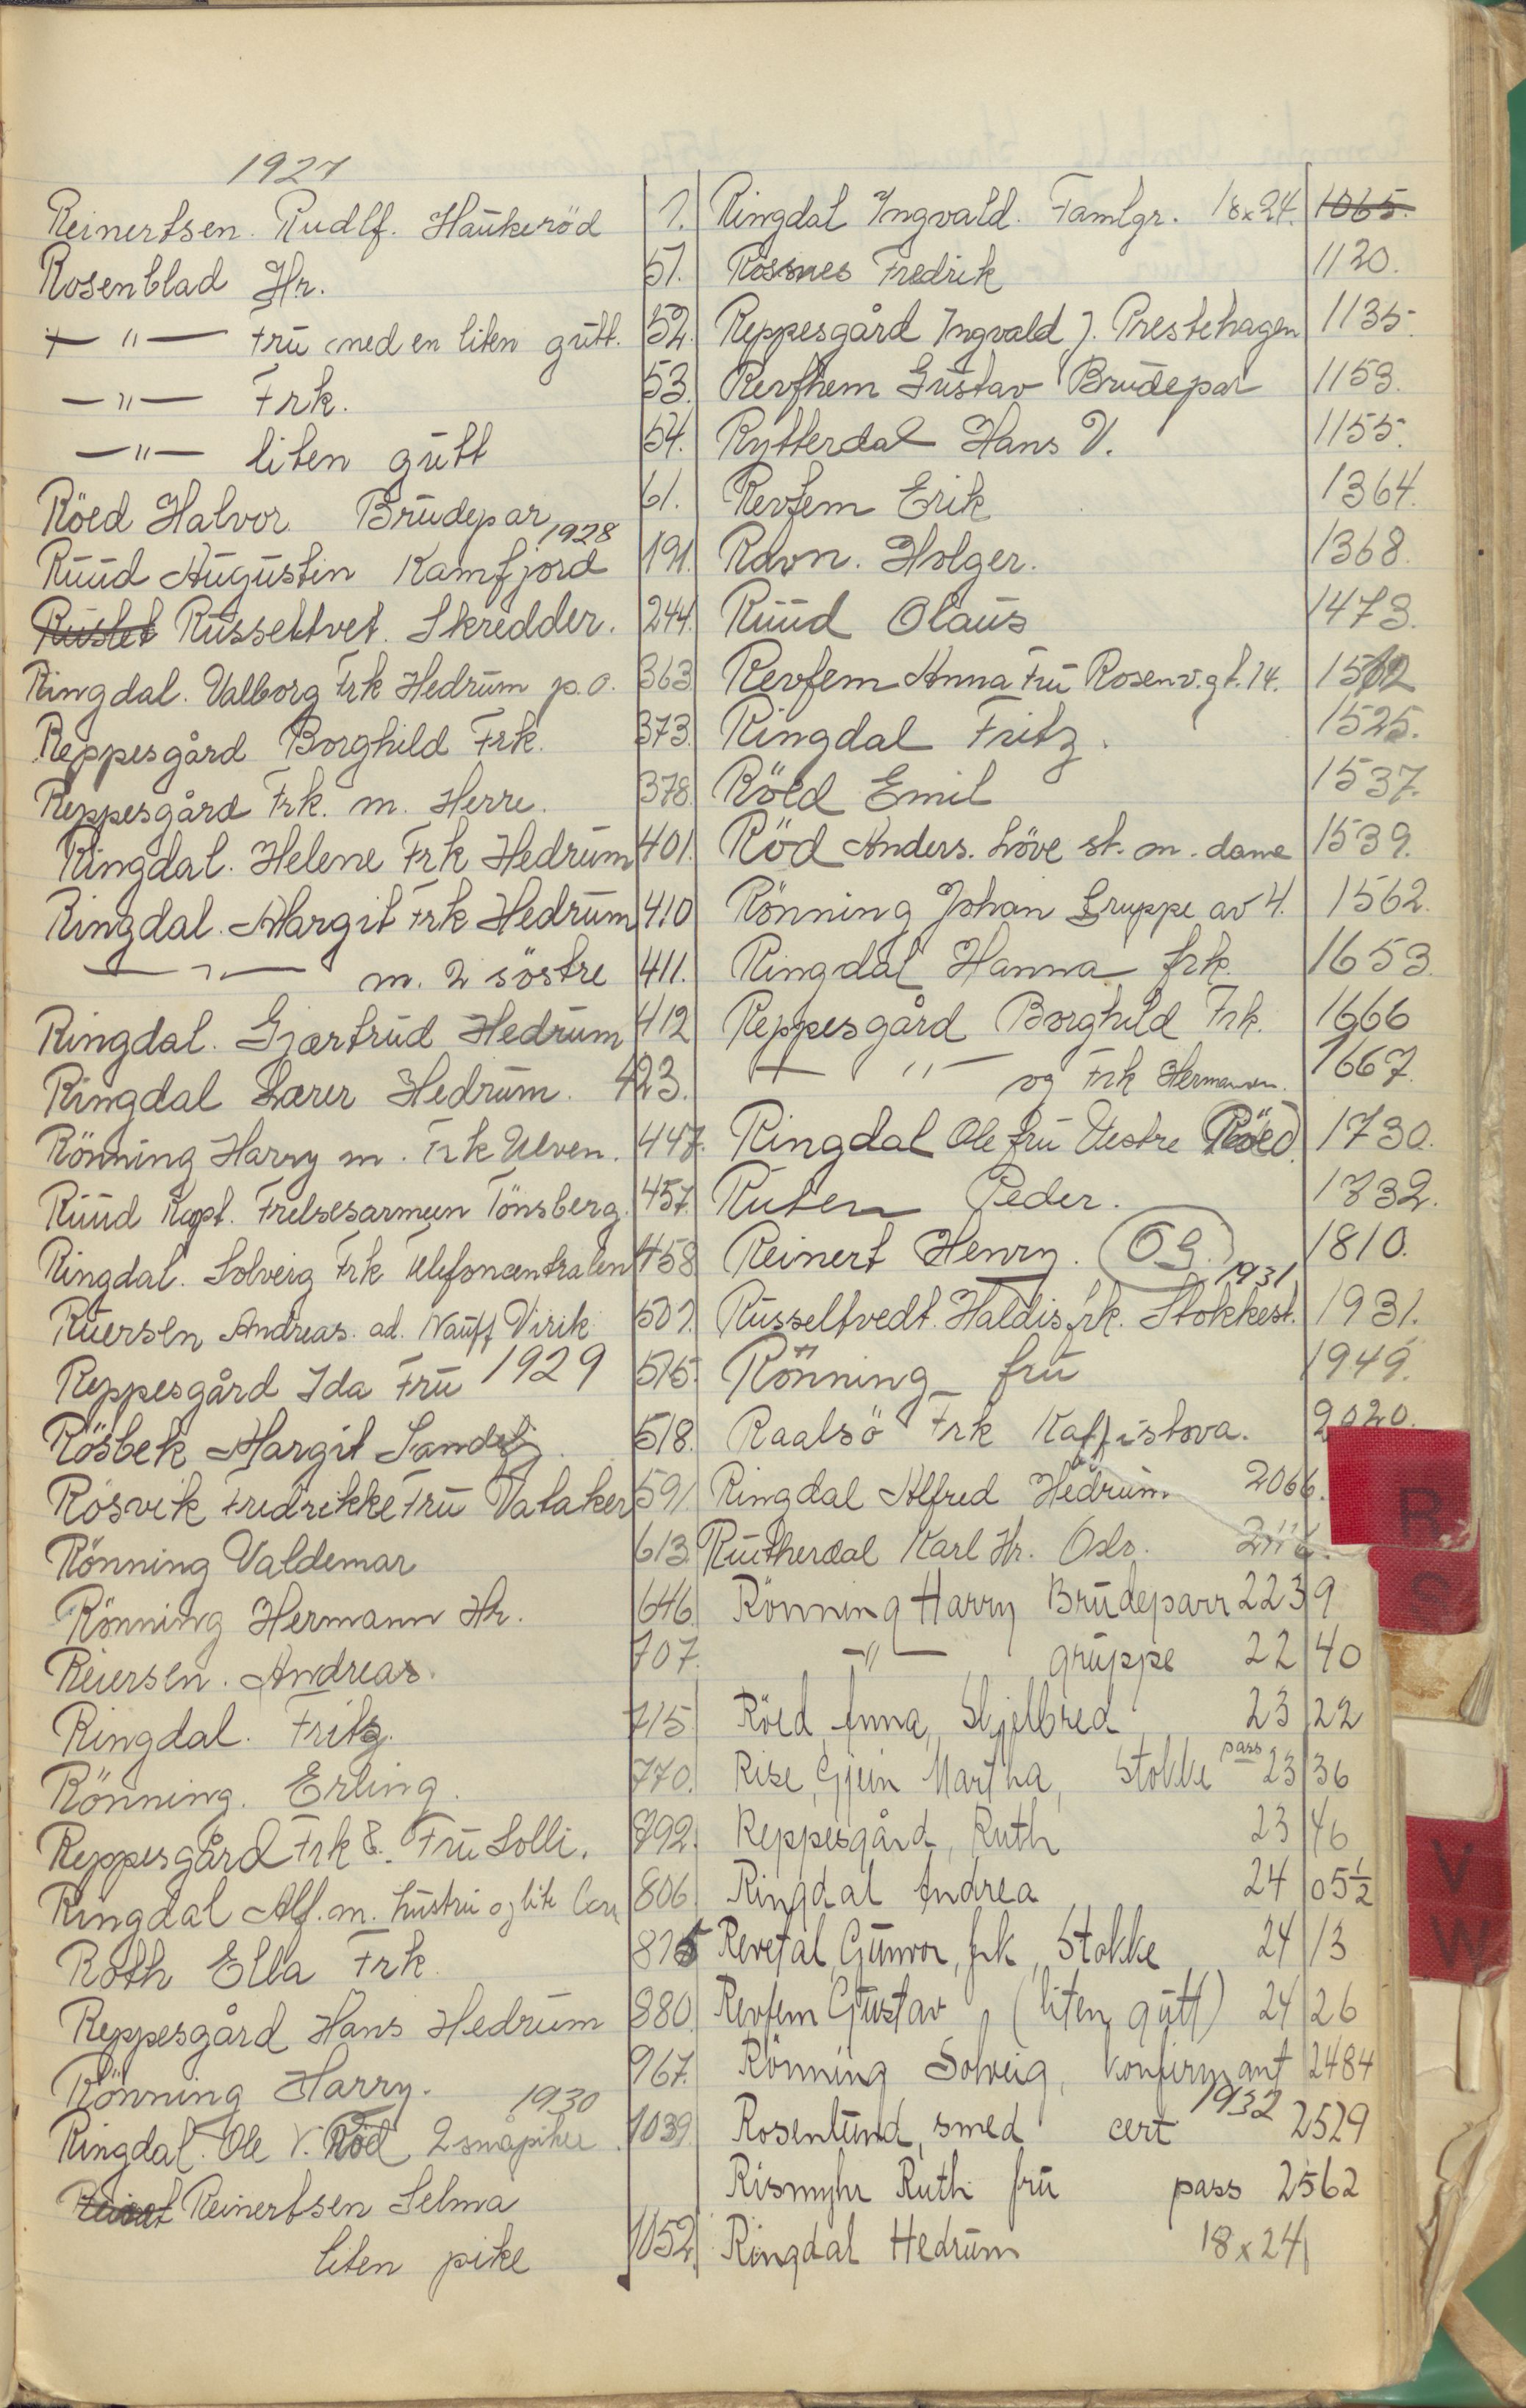 1927
Reinertsen. Rudlf. Haukeröd 1.
Rosenblad Hr. 51.
—"— Fru med en liten gutt. 52.
—"— Frk. 53.
—"— liten gutt 54.
Röed Halvor Brudepar 61.
1928
Ruud Augustin Kamfjord 191.
Russeltvet. Skredder. 244.
Ringdal. Valborg Frk Hedrum p.o. 363
Reppesgård Borghild Frk. 373.
Reppesgård Frk. m. Herre. 378.
Ringdal. Helene Frk Hedrum 401.
Ringdal. Margit Frk Hedrum 410
—"— m. 2 söstre 411.
Ringdal. Gjærtrud Hedrum 412
Ringdal Lærer Hedrum. 423.
Rönning Harry m. Frk Ulven. 447.
Ruud Kapt. Frelsesarmeen Tönsberg. 457.
Ringdal. Solveig Frk Telefoncentralen 458
Andreas. ad. Virik 501.
1929
Reppesgård Ida Fru 515.
Rösbek Margit 518.
Rösvik Fredrikke Fru Vataker 591
Rönning Valdemar 613
Rönning Hermann Hr. 646
Reiersen. Andreas. 707.
Ringdal. Fritz. 715
Rönning. Erling. 770.
Reppesgård Frk & Fru Solli. 792.
Ringdal Alf. m. hustru og lite 806
Roth Ella Frk. 875
Reppesgård Hans Hedrum 880
Rönning Harry. 967.
1930
Ringdal. Ole V. Röd 2 småpiker 1039.
Reinertsen Selma
liten pike 1052
Ringdal Ingvald. Famlgr. 18x24. 1065.
Rossnes Fredrik 1120.
Reppesgård Ingvald J. Prestehagen 1135
Revfhem Gustav Brudepar 1153.
Rytterdal Hans V. 1155.
Revfem Erik 1364.
Ravn. Holger. 1368.
Ruud Olaus 1473.
Revfem Anna Fru Rosenv.gt. 14. 1512
Ringdal Fritz. 1525.
Röed Emil 1537.
Röd Anders. Löve st. m. dame 1539.
Rönning Johan Gruppe av 4. 1562.
Ringdal Hanna frk. 1653.
Reppesgård Borghild Frk. 1666
—"— og Frk Hermansen. 1667.
Ringdal Ole fru Vestre Röed. 1730.
Ruten Peder. 1732.
Reinert Henry. OS. 1810.
1931
Russeltvedt. Haldis frk. Stokkest. 1931.
Rönning fru 1949.
Raalsö Frk Kaffistova. 2020.
Ringdal Alfred Hedrum 2066.
Rutherdal Karl Hr. Oslo. 2116.
Rönning Harry Brudeparr 2239
—"— gruppe 2240
Röed, Anna, Skjelbred 2322
Rise, Gjein Martha, Stokke pass 2336
Reppesgård, Ruth 2346
Ringdal Andrea 2405½
Revetal, Gunvor, frk, Stokke 2413
Revfem Gustav, (liten gutt) 2426
Rönning Solveig, konfirmant 2484
1932
Rosenlund, smed cert 2529
Rismyhr Ruth fru pass 2562
Ringdal Hedrum 18x24
R
S
V
W